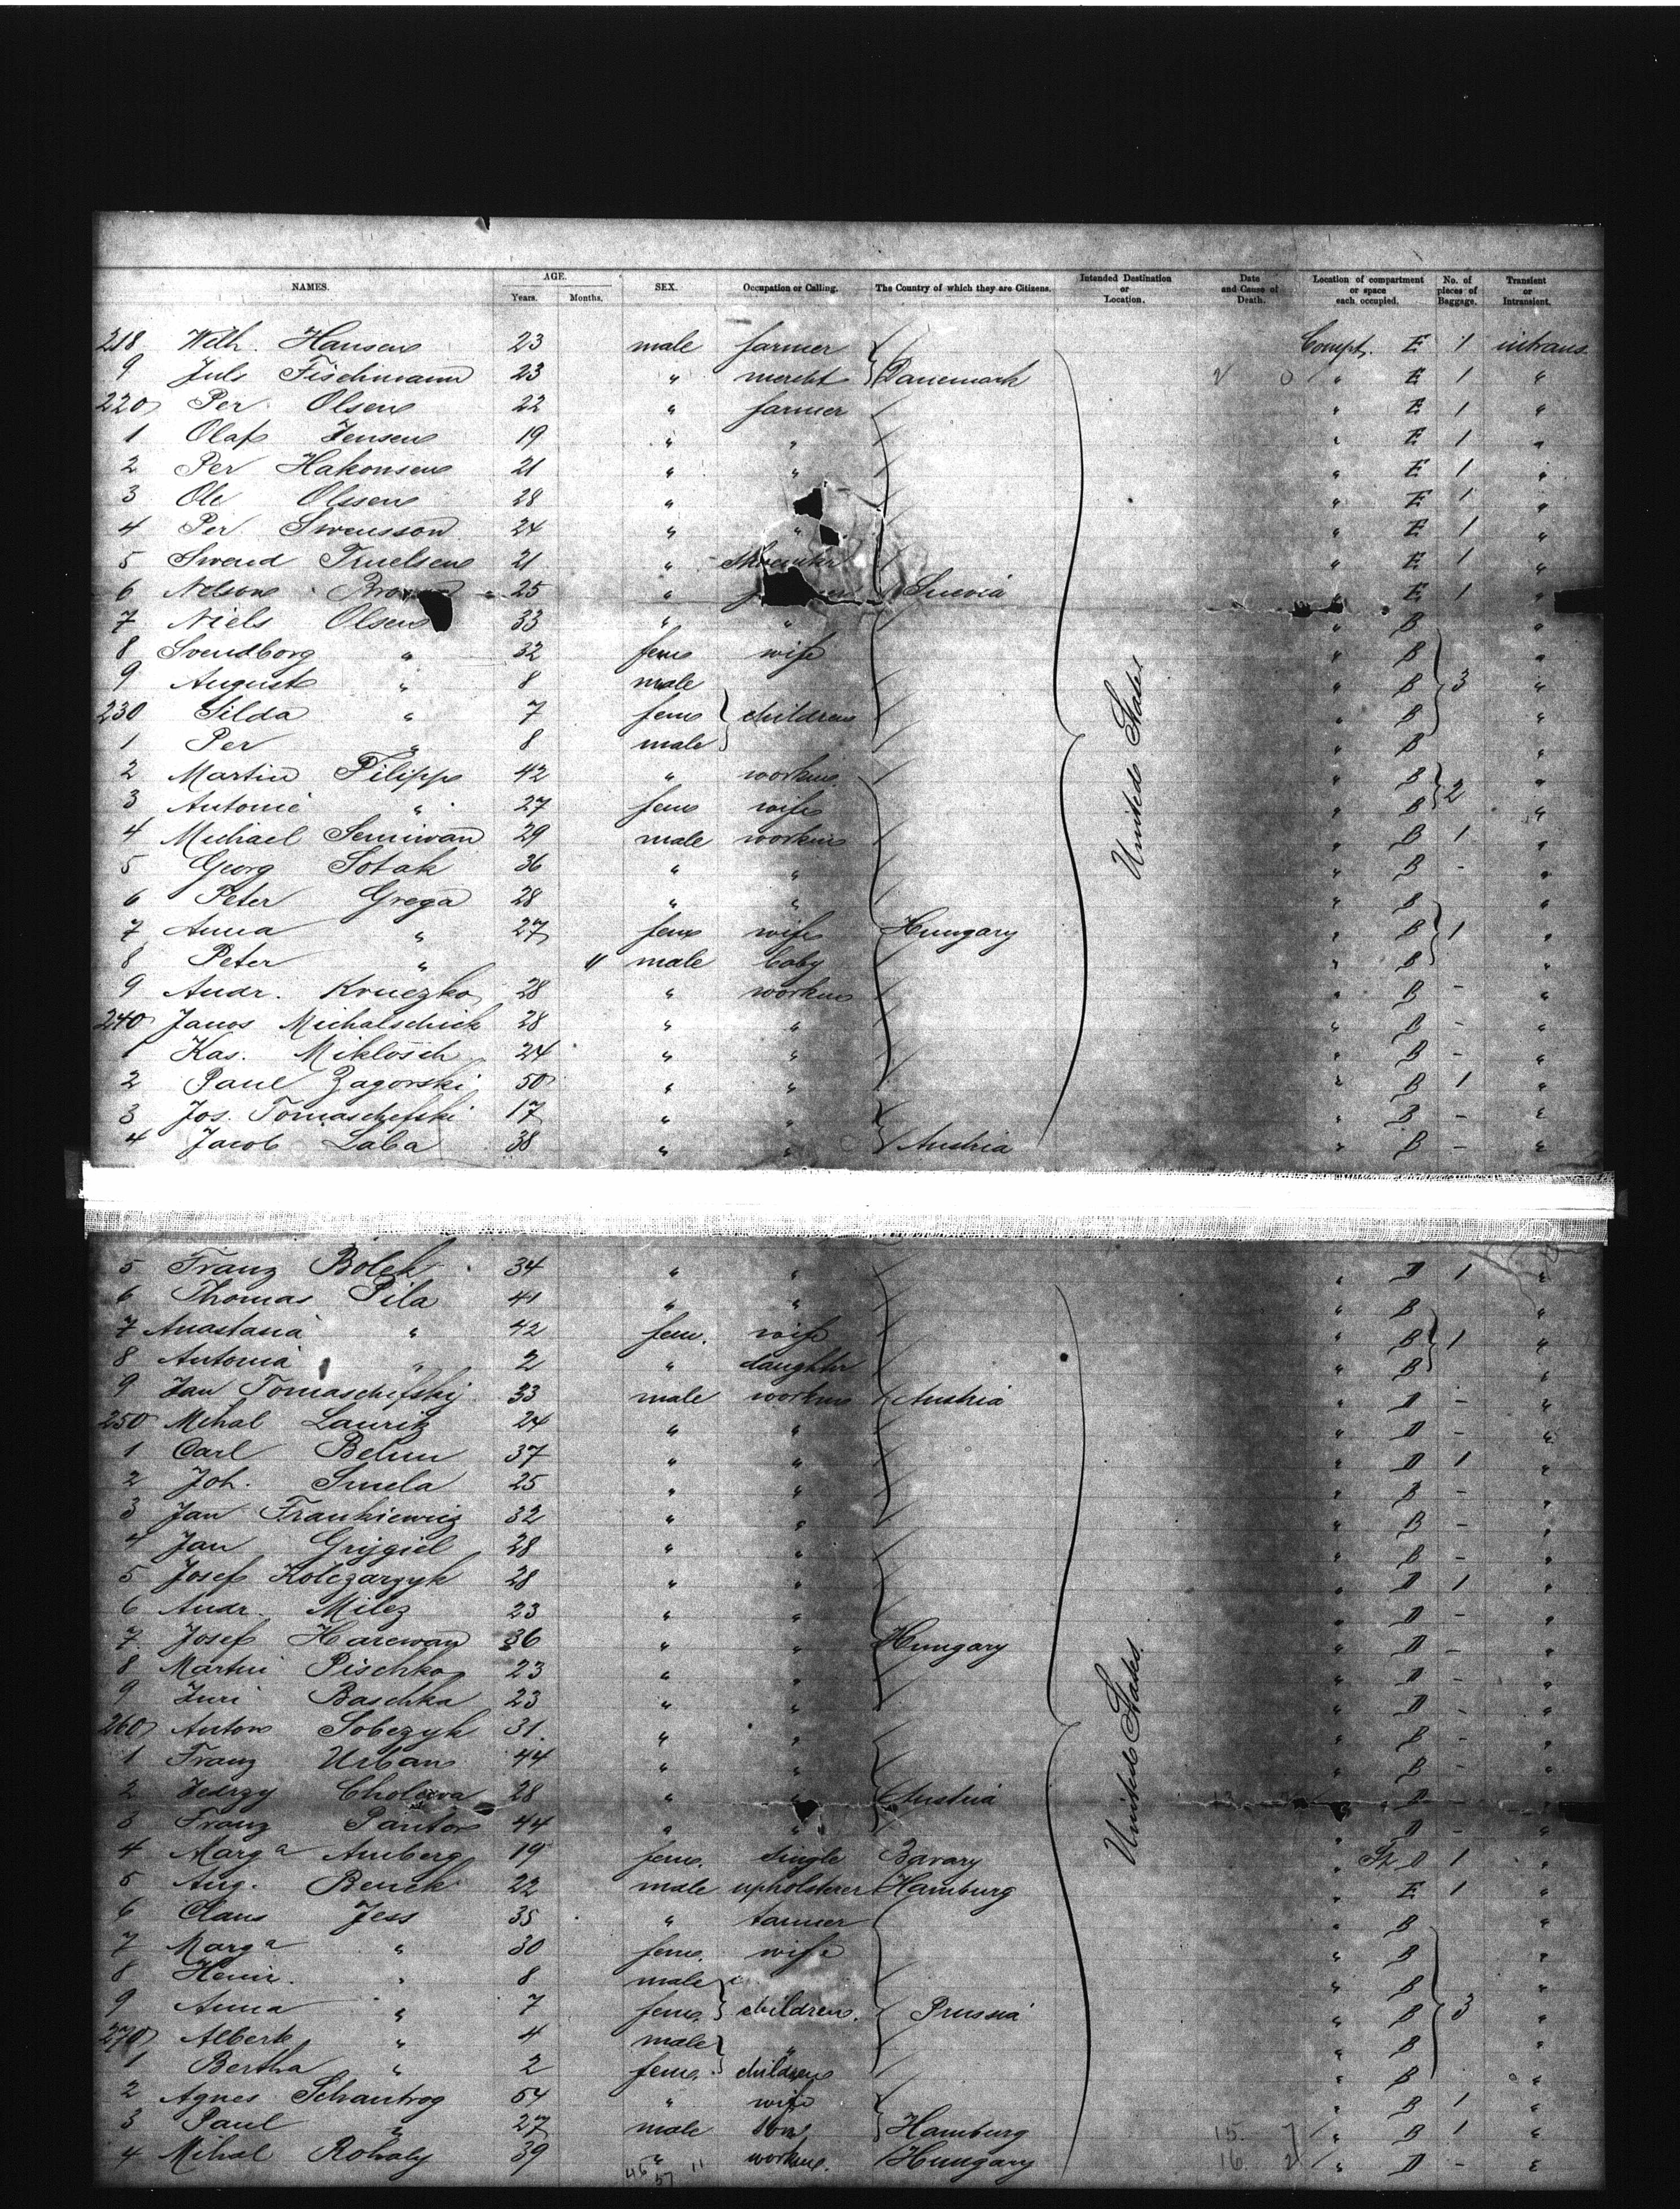 NAMES. AGE. Years. Months. SEX. Occupation or Calling. The Country of which they are Citizens. Intended Destination or Location. Date and Cause of Death. Location of compartment or space each occupied. No. of pieces of Baggage. Transient or Intransient.
218 Wilh. Hansen 23 male farmer Compt. E 1 intrans
9 Juls Fischmann 23 " mercht Danemark " E 1 "
220 Per Olsen 22 " farmer " E 1 "
1 Olaf Jensen 19 " " " E 1 "
2 Per Hakonsen 21 " " " E 1 "
3 Ole Olssen 28 " " E 1 "
4 Per Swensson 24 " " " E 1 "
5 Swend Truelsen 21 " " E 1 "
6 Nelson 25 " " E 1 "
7 Niels Olsen 33 " " " B "
8 Svendborg " 32 fem wife " B "
9 August " 8 male " B 3 "
230 Silda " 7 fem children " B "
1 Per " 8 male " B "
2 Martin Filipp 42 " workm " B 2 "
3 Antonie " 27 fem wife " B "
4 Michael Semiwan 29 male workm " B 1 "
5 Georg Sotak 36 " " " B - "
6 Peter Grega 28 " " " B "
7 Anna " 27 fem wife Hungary " B 1 "
8 Peter " 11 male baby " B "
9 Andr. Kruczko 28 " workm " B - "
240 Janos Michalschick 28 " " " B - "
1 Kas. Miklosch 24 " " " B - "
2 Paul Zagorski 50 " " " B 1 "
3 Jos. Tomaschefski 17 " " " B - "
4 Jacob Laba 38 " " Austria " B - "
United States
5 Franz Bolek 34 " " " D 1 "
6 Thomas Pila 41 " " " B "
7 Anastasia " 42 fem. wife " B 1 "
8 Antonia " 2 " daughter " B "
9 Jan Tomaschefskj 33 male workm Austria " D - "
250 Mihal Lauritz 24 " " " D - "
1 Carl Behm 37 " " " D 1 "
2 Joh. Smela 25 " " " B - "
3 Jan Frankiewicz 32 " " " B - "
4 Jan Grijgiel 28 " " " B - "
5 Josef Kolczarzyk 28 " " " D 1 "
6 Andr. Milez 23 " " " D - "
7 Josef Harcwan 36 " " Hungary " D - "
8 Martin Pischko 23 " " " D - "
9 Juri Baschka 23 " " " D - "
260 Anton Sobczyk 31. " " " B - "
1 Franz Urban 44 " " " B - "
2 Jedrzy Cholewa 28 " " Austria " D - "
3 Franz Pantor 44 " " " D - "
4 Marga Amberg 19 fem. single Bavary " D 1 "
5 Aug. Benck 22 male upholsterer Hamburg " E 1 "
6 Claus Jess 35 " tanner " B "
7 Marga " 30 fem. wife " B "
8 Heinr. " 8 male " B "
9 Anna " 7 fem. children. Prussia " B 3 "
270 Albert " 4 male " B "
1 Bertha " 2 fem. children " B "
2 Agnes Schantrog 54 " wife " B 1 "
3 Paul " 27 male son Hamburg " B 1 "
4 Mihal Rohaly 39 " workm. Hungary " D - "
United States.